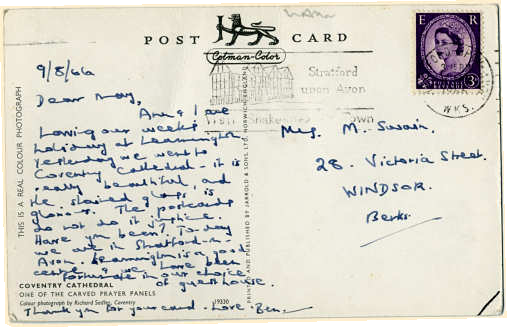 POST CARD
Cotman-Color
E R
POSTAGE REVENUE
3D
Stratford
upon Avon
Visit Shakespeare's Town
WKS.
THIS IS A REAL COLOUR PHOTOGRAPH
9/8/66
Dear May,
Ann & I are
having our week's
holiday at Leamington
yesterday we went to
Coventry Cathedral - it is
really beautiful, and
the stained glass is
glorious. The postcards
do not do it justice.
Have you been? To-day
we are in Stratford-on-
Avon. Leamington is a good
centre & we have been
fortunate in our choice
of guest house.
Thank you for your card. Love. Ben.
COVENTRY CATHEDRAL
ONE OF THE CARVED PRAYER PANELS
Colour photograph by Richard Sadler, Coventry
19330
PRINTED AND PUBLISHED BY JARROLD & SONS, LTD. NORWICH, ENGLAND
Mrs. M. Swain.
28. Victoria Street.
WINDSOR.
Berks.